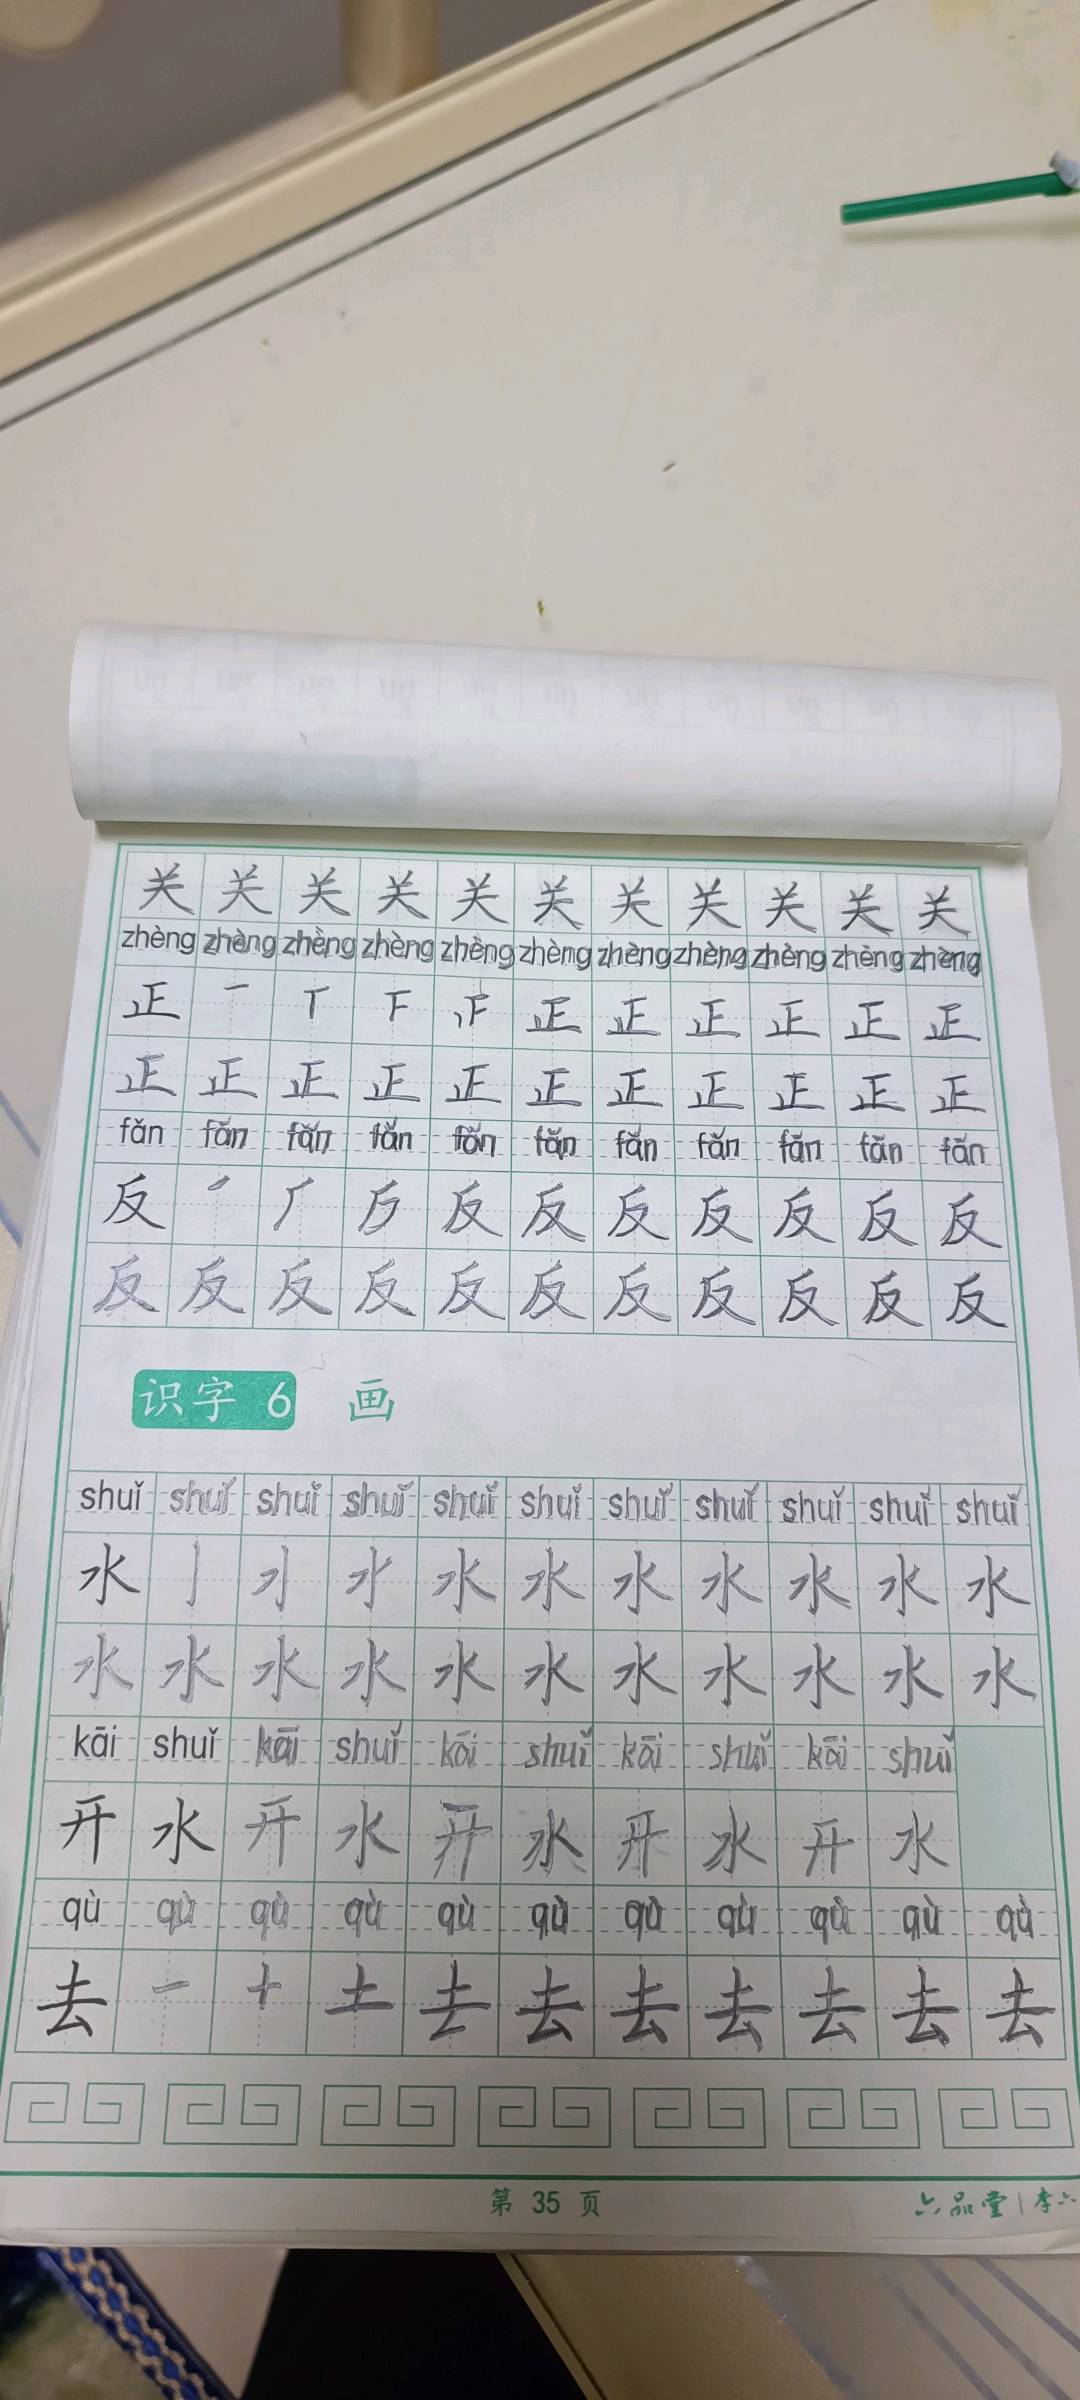 关 关 关 关 关 关 关 关 关 关 关
zhèng zhèng zhèng zhèng zhèng zhèng zhèng zhèng zhèng zhèng zhèng
正 一 丅 下 正 正 正 正 正 正
正 正 正 正 正 正 正 正 正 正 正
fǎn fǎn fǎn fǎn fǎn fǎn fǎn fǎn fǎn fǎn fǎn
反 丿 厂 反 反 反 反 反 反 反
反 反 反 反 反 反 反 反 反 反 反
识字 6 画
shuǐ shuǐ shuǐ shuǐ shuǐ shuǐ shuǐ shuǐ shuǐ shuǐ shuǐ
水 亅 水 水 水 水 水 水 水
水 水 水 水 水 水 水 水 水 水 水
kāi shuǐ kāi shuǐ kāi shuǐ kāi shuǐ kāi shuǐ
开 水 开 水 开 水 开 水 开 水
qù qù qù qù qù qù qù qù qù qù qù
去 一 十 土 去 去 去 去 去 去 去
第 35 页
六品堂 | 李六